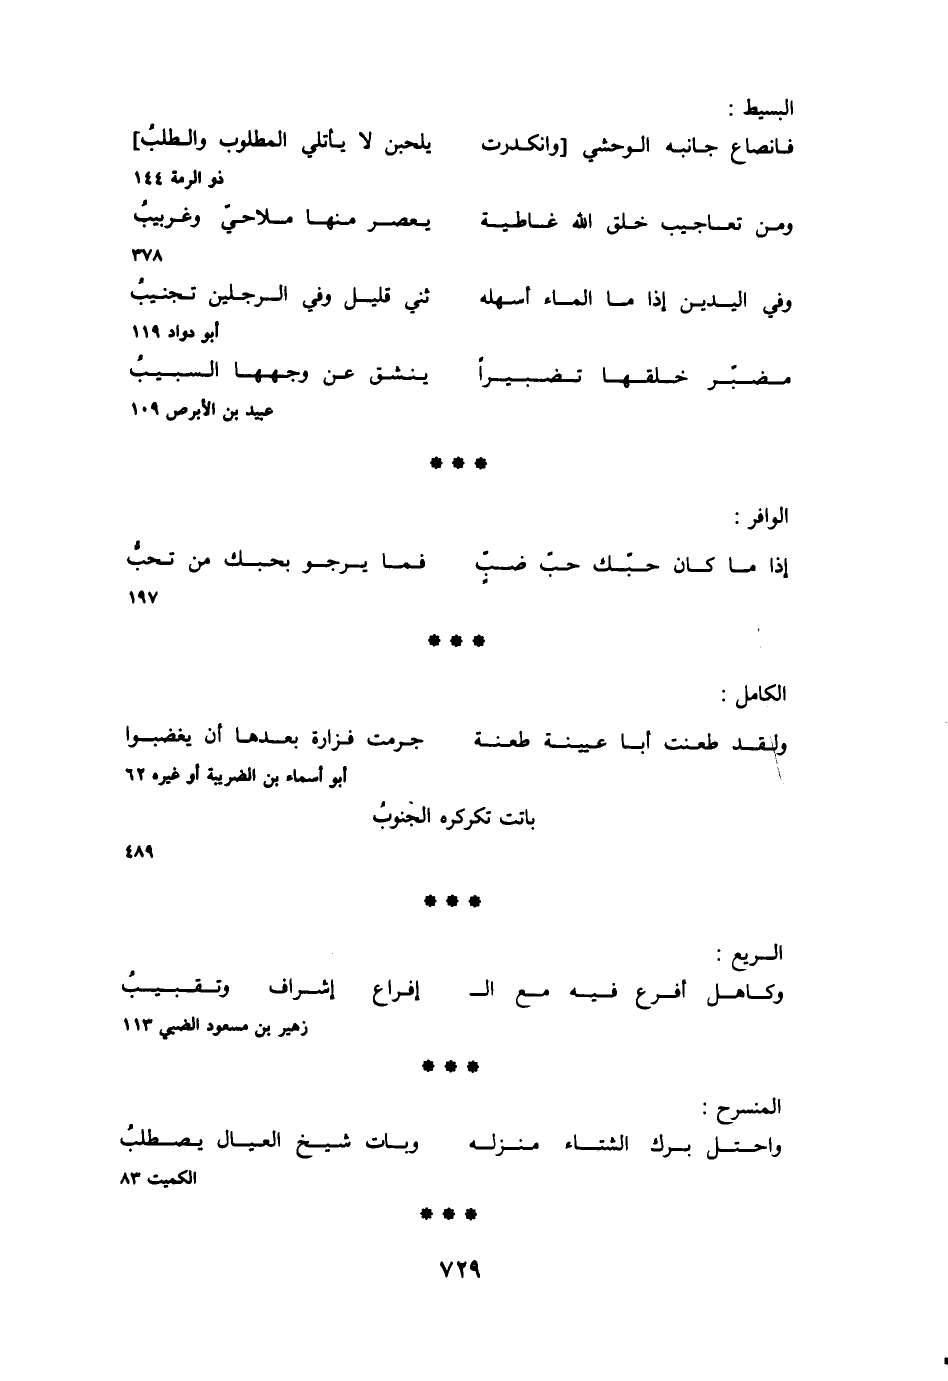 البسيط :
فانصاع جانبه الوحشي [وانكدرت يلحبن لا يأتلي المطلوب والطلبُ]
ذو الرمة ١٤٤
ومن تعاجيب خلق الله غاطية يعصر منها ملاحيّ وغربيبُ
٣٧٨
وفي اليدين إذا ما الماء أسهله ثني قليل وفي الرجلين تجنيبُ
أبو دواد ١١٩
مضبّر خلقها تضبيراً ينشق عن وجهها السبيبُ
عبيد بن الأبرص ١٠٩
***
الوافر :
إذا ما كان حبّك حبّ ضبٍّ فما يرجو بحبك من تحبُّ
١٩٧
***
الكامل :
ولقد طعنت أبا عيينة طعنة جرمت فزارة بعدها أن يغضبوا
أبو أسماء بن الضريبة أو غيره ٦٢
باتت تكركره الجنوبُ
٤٨٩
***
الريع :
وكاهل أفرع فيه مع الـ إفراع إشراف وتقبيبُ
زهير بن مسعود الضبي ١١٣
***
المنسرح :
واحتل برك الشتاء منزله وبات شيخ العيال يصطلبُ
الكميت ٨٣
***
٧٢٩